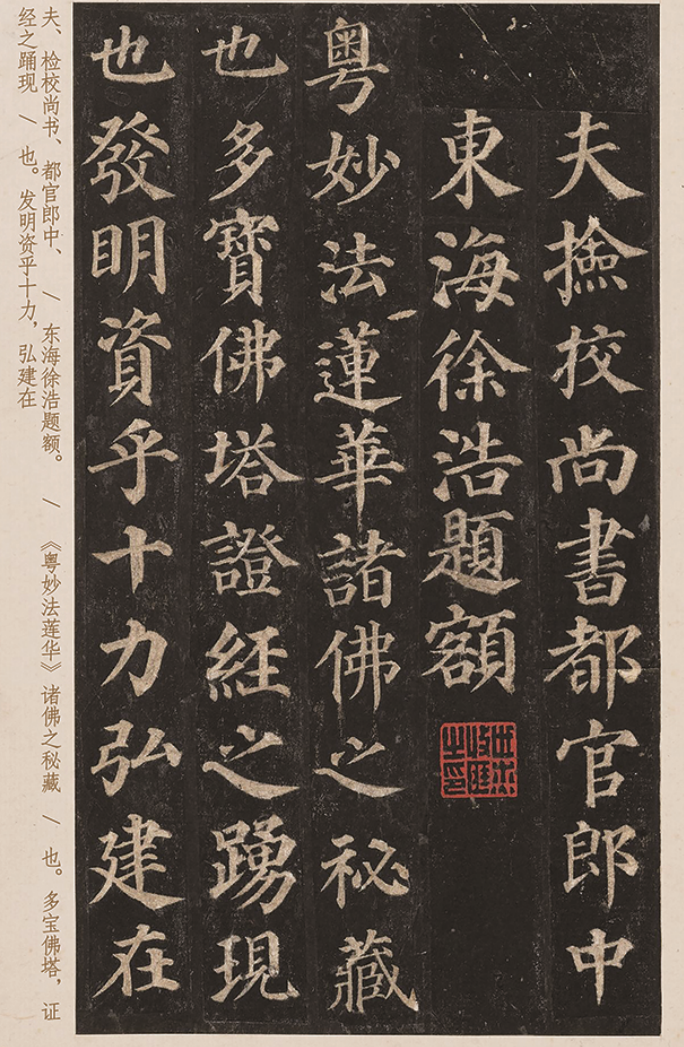 夫撿校尚書都官郎中
東海徐浩題額
粵妙法蓮華諸佛之祕藏
也多寶佛塔證經之踴現
也發明資乎十力弘建在
夫、检校尚书、都官郎中、 / 东海徐浩题额。 / 《粤妙法莲华》诸佛之秘藏 / 也。多宝佛塔，证
经之踊现 / 也。发明资乎十力，弘建在